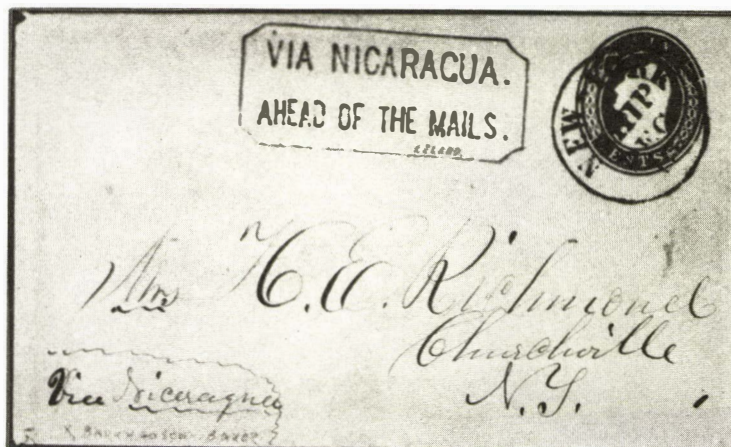 VIA NICARAGUA.
AHEAD OF THE MAILS.
LELAND.
NEW YORK
Mrs H. E. Richmond
Churchville
N.Y.
Via Nicaragua